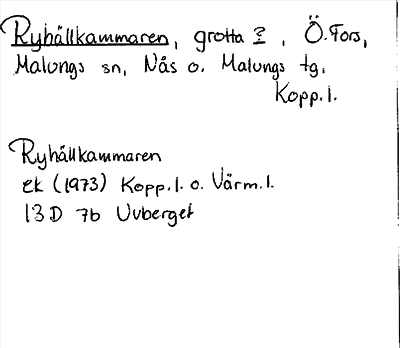 Ryhällkammaren, grotta ?, Ö. Fors,
Malungs sn, Nås o. Malungs tg.
Kopp. l.
Ryhällkammaren
ek (1973) Kopp. l. o. Värm. l.
13 D 7b Uvberget